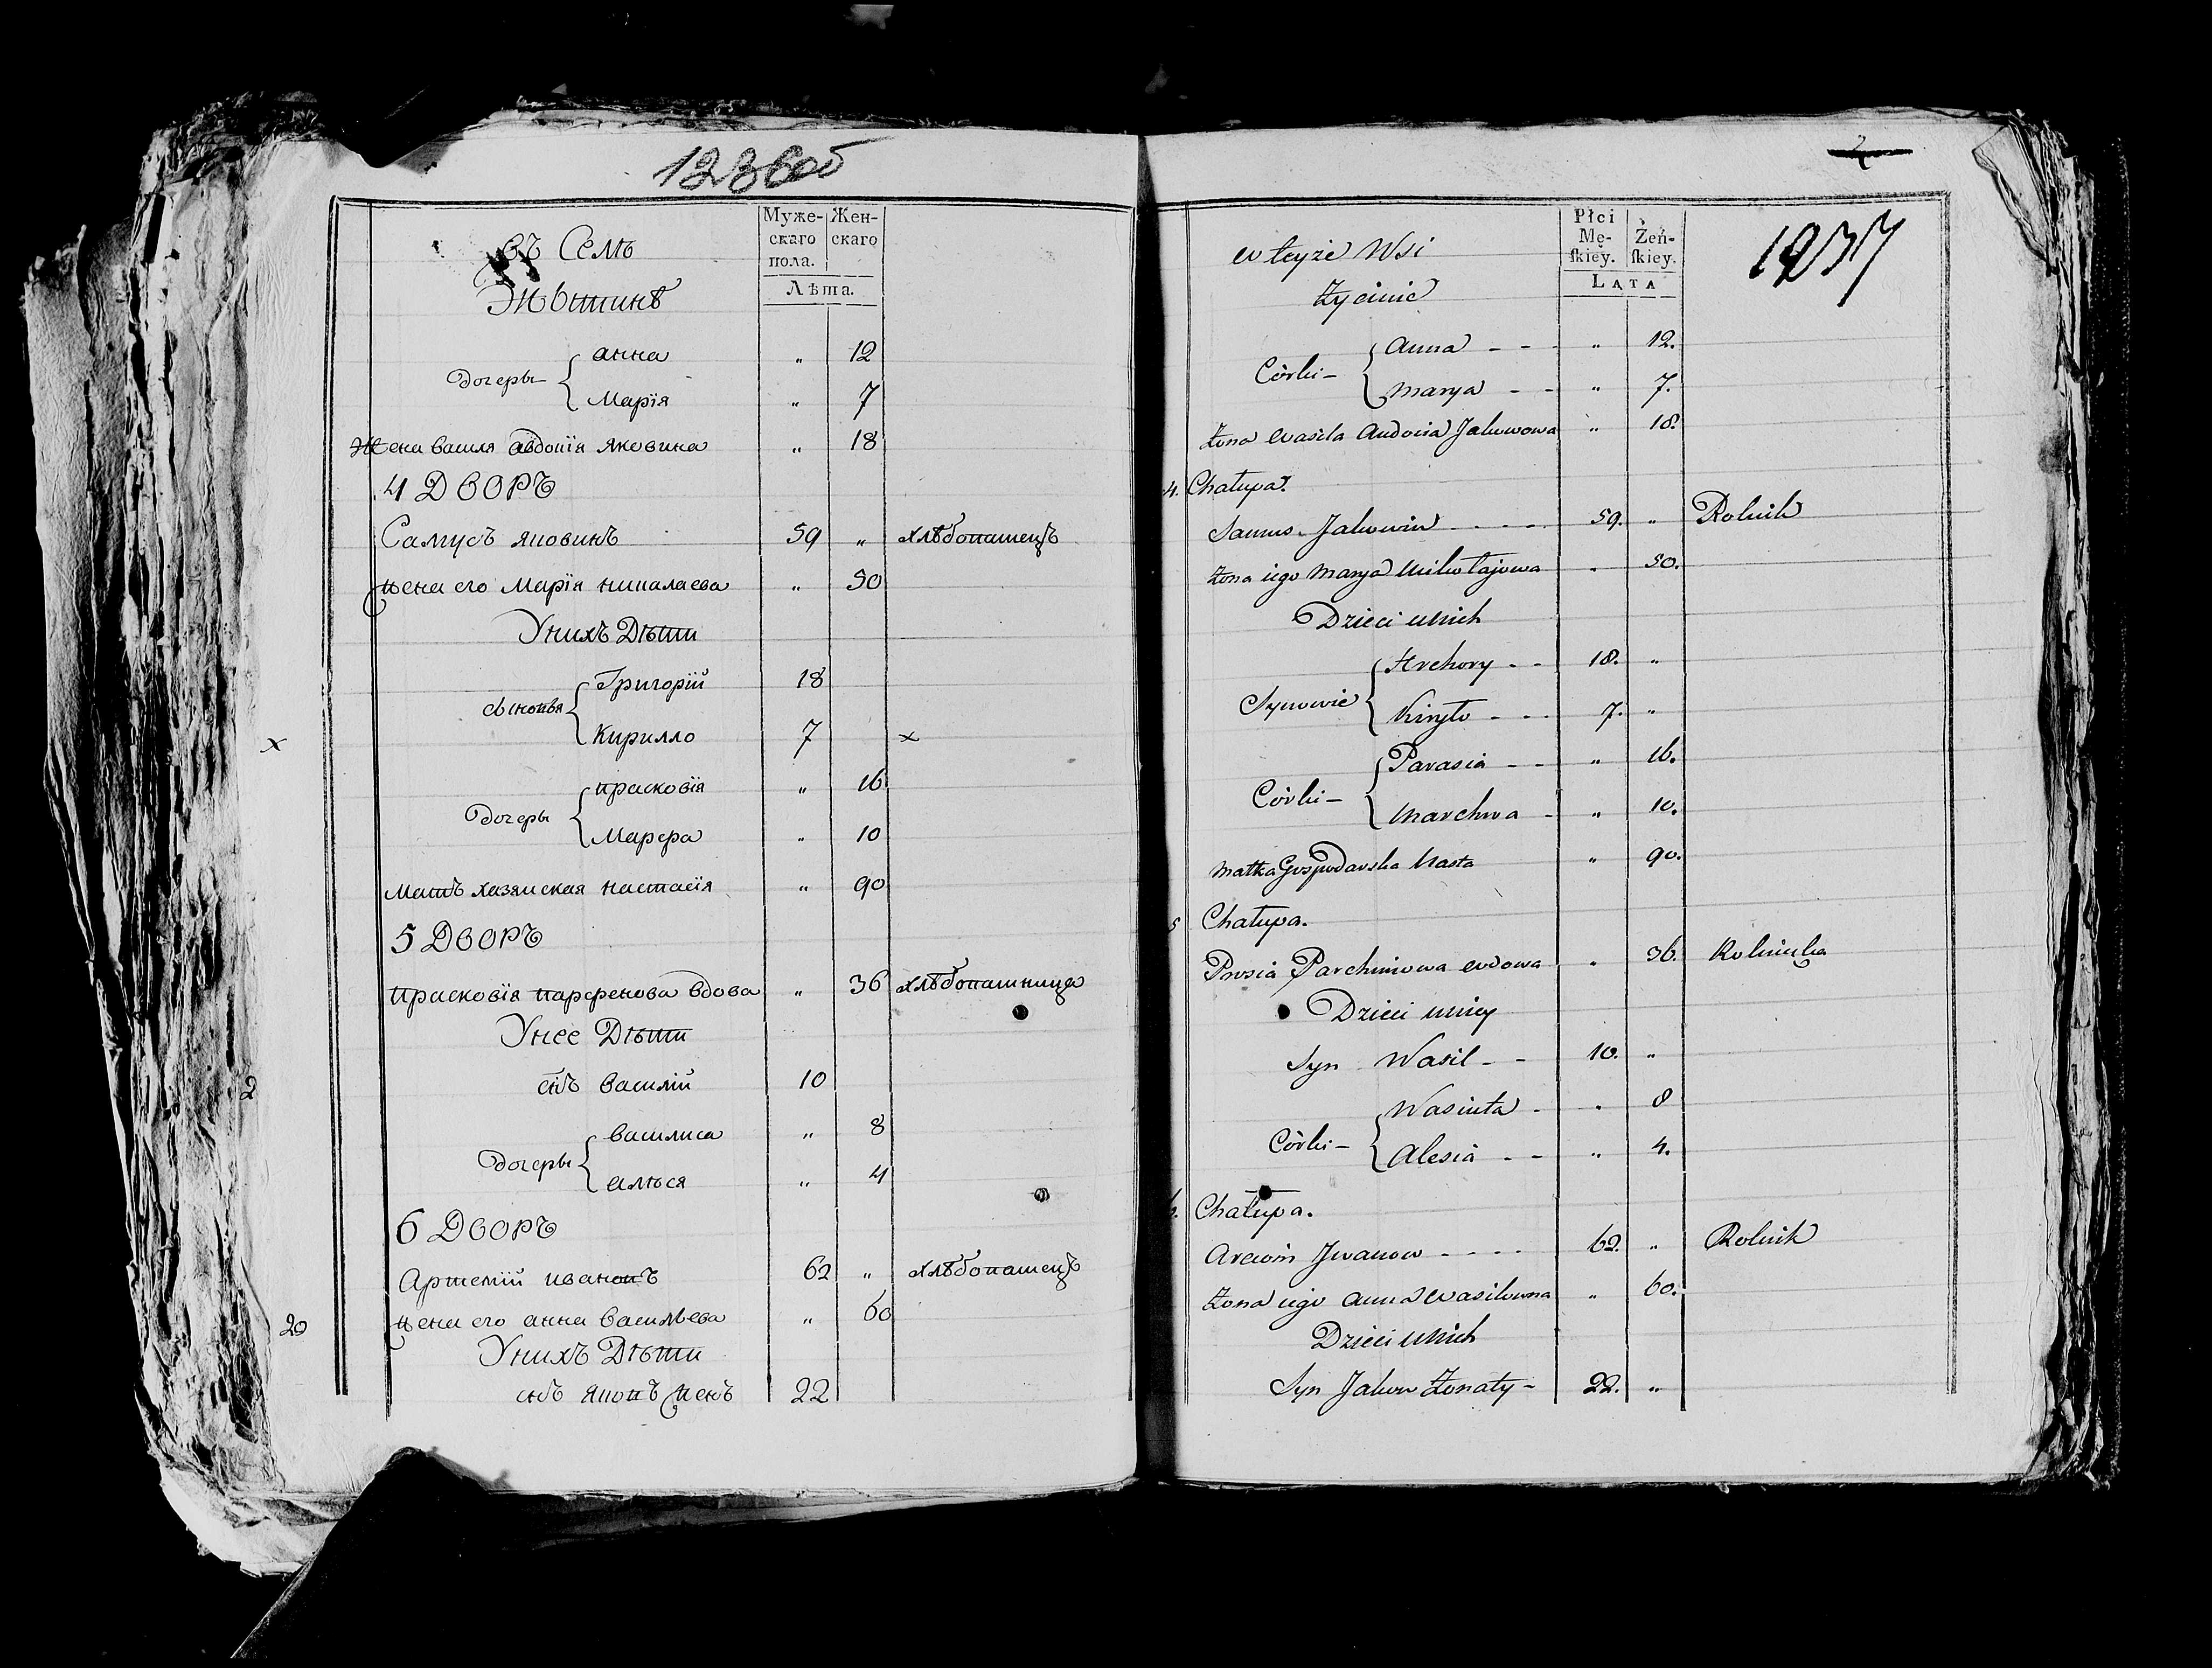 1236об
въ Семъ
Жытинѣ
Муже-
скаго
пола.
Жен-
скаго
Лѣта.
Дочеры
анна „ 12
Марія „ 7
Жена василя авдотія яковина „ 18
4 ДВОРЪ
Самусъ яковинъ 59 „ хлѣбопашецъ
жена его Марія николаева „ 50
Унихъ Дѣти
сыновья
Григорій 18
Кирилло 7 x
x
Дочеры
прасковія „ 16
Марфра „ 10
мать хазяиская настасія „ 90
5 ДВОРЪ
прасковія парфенова вдова „ 36 хлѣбопашница
Унее Дѣти
снъ василій 10
2
Дочеры
василиса „ 8
алѣся „ 4
6 ДВОРЪ
Артемій ивановъ 62 „ хлѣбопашецъ
жена его анна васильева „ 60
20
Унихъ Дѣти
снъ яковъ жен 22
1237
w teyże Wsi
Życinie
Płci
Mę-
ſkiey.
Żeń-
ſkiey.
LATA
Córki –
Anna – – – „ 12.
Marya – – „ 7.
Żona Wasila Audocia Jakowowa „ 18.
4. Chałupa.
Samus Jakowin – – – – 59. „ Rolnik
Żona iego Marya Mikołajowa „ 50.
Dzieci u Nich
Synowie
Hrehory – – 18. „
Kiryło – – – 7. „
Córki –
Parasia – – „ 16.
Marchwa – „ 10.
Matka Gospodarska Nasta „ 90.
5 Chałupa.
Prosia Parchimowa wdowa „ 36. Rolniczka
Dzieci u niey
Syn Wasil – – 10. „
Córki –
Wasiuta – „ 8
Alesia – – „ 4.
6. Chałupa.
Arciom Jwanow – – – – 62. „ Rolnik
Żona iego Anna Wasilowna „ 60.
Dzieci u Nich
Syn Jakow Żonaty – 22. „